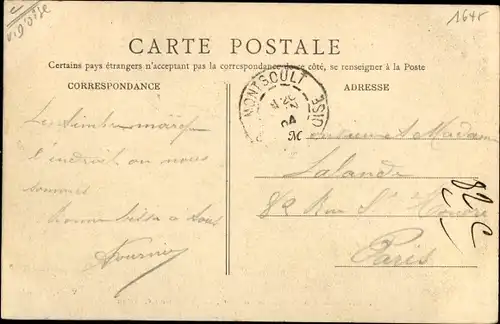 Val d'Oise
1645
CARTE POSTALE
Certains pays étrangers n'acceptant pas la correspondance de ce côté, se renseigner à la Poste
CORRESPONDANCE
ADRESSE
MONTSOULT
OISE
04
Le timbre marque
l'endroit où nous
sommes
bonne bise à tous
Fournier
Monsieur & Madame
Lalande
82 Rue St Honoré
Paris
82 C